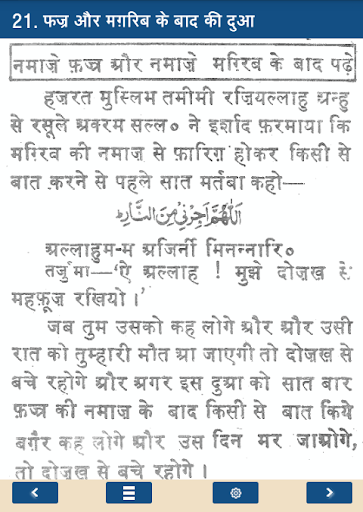 21. फज्र और मग़रिब के बाद की दुआ
नमाज़े फ़ज्र और नमाज़े मग़्रिब के बाद पढ़े
हज़रत मुस्लिम तमीमी रज़ियल्लाहु अन्हु
से रसूले अकरम सल्ल० ने इर्शाद फ़रमाया कि
मग़्रिब की नमाज़ से फ़ारिग़ होकर किसी से
बात करने से पहले सात मर्तबा कहो—
اَللّٰهُمَّ اَجِرْنِيْ مِنَ النَّارِ ط
अल्लाहुम-म अजिर्नी मिनन्नारि०
तर्जुमा—'ऐ अल्लाह ! मुझे दोज़ख से
महफ़ूज़ रखियो ।'
जब तुम उसको कह लोगे और और उसी
रात को तुम्हारी मौत आ जाएगी तो दोज़ख से
बचे रहोगे और अगर इस दुआ को सात बार
फ़ज्र की नमाज़ के बाद किसी से बात किये
बग़ैर कह लोगे और उस दिन मर जाओगे,
तो दोज़ख से बचे रहोगे ।